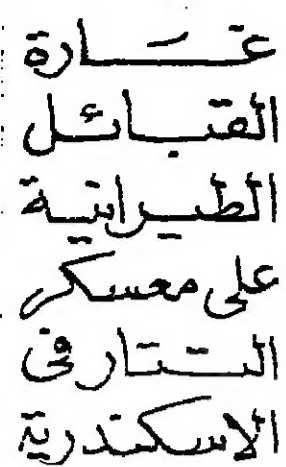 غارة
القبائل
الطيرانية
على معسكر
التتار فى
الاسكندرية